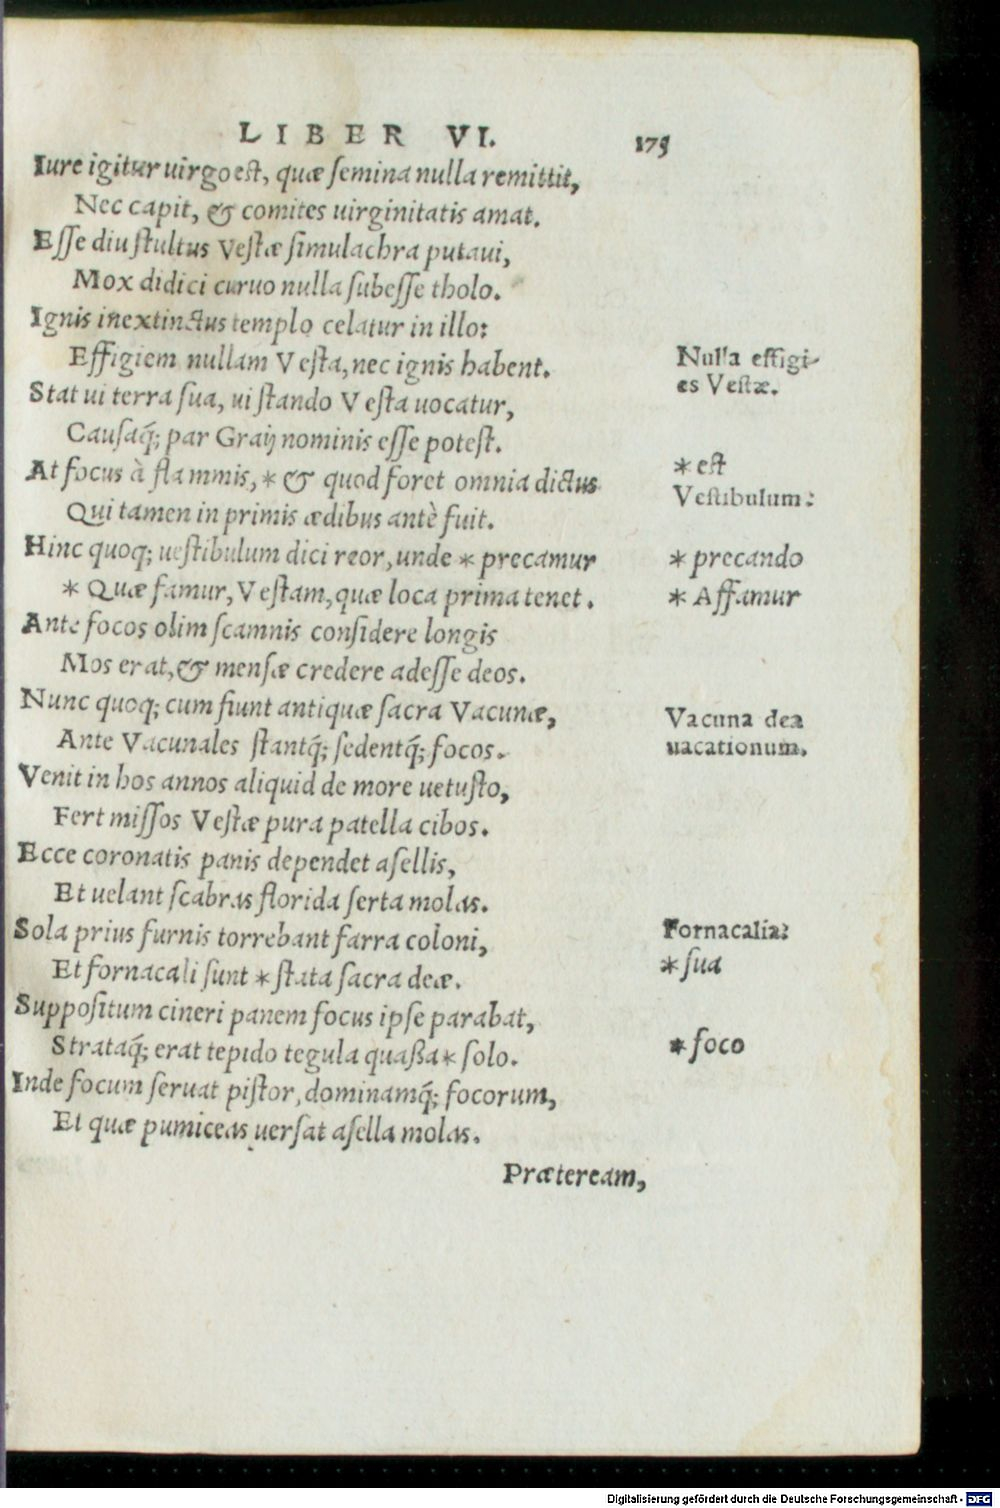 LIBER VI. 175
Iure igitur uirgo est, quæ semina nulla remittit,
Nec capit, & comites uirginitatis amat.
Esse diu stultus Vestæ simulachra putaui,
Mox didici curuo nulla subesse tholo.
Ignis inextinctus templo celatur in illo:
Effigiem nullam Vesta, nec ignis habent.
Nulla effigi-
es Vestæ.
Stat ui terra sua, ui stando Vesta uocatur,
Causaq́; par Graij nominis esse potest.
At focus à flammis, * & quod foret omnia dictus
* est
Vestibulum:
Qui tamen in primis ædibus antè fuit.
Hinc quoq; uestibulum dici reor, unde * precamur
* precando
* Quæ famur, Vestam, quæ loca prima tenet.
* Affamur
Ante focos olim scamnis considere longis
Mos erat, & mensæ credere adesse deos.
Nunc quoq; cum fiunt antiquæ sacra Vacunæ,
Vacuna dea
uacationum.
Ante Vacunales stantq́; sedentq́; focos.
Venit in hos annos aliquid de more uetusto,
Fert missos Vestæ pura patella cibos.
Ecce coronatis panis dependet asellis,
Et uelant scabras florida serta molas.
Sola prius furnis torrebant farra coloni,
Fornacalia:
Et fornacali sunt * stata sacra deæ.
* sua
Suppositum cineri panem focus ipse parabat,
Strataq́; erat tepido tegula quaßa * solo.
* foco
Inde focum seruat pistor, dominamq́; focorum,
Et quæ pumiceas uersat asella molas.
Præteream,
Digitalisierung gefördert durch die Deutsche Forschungsgemeinschaft - DFG